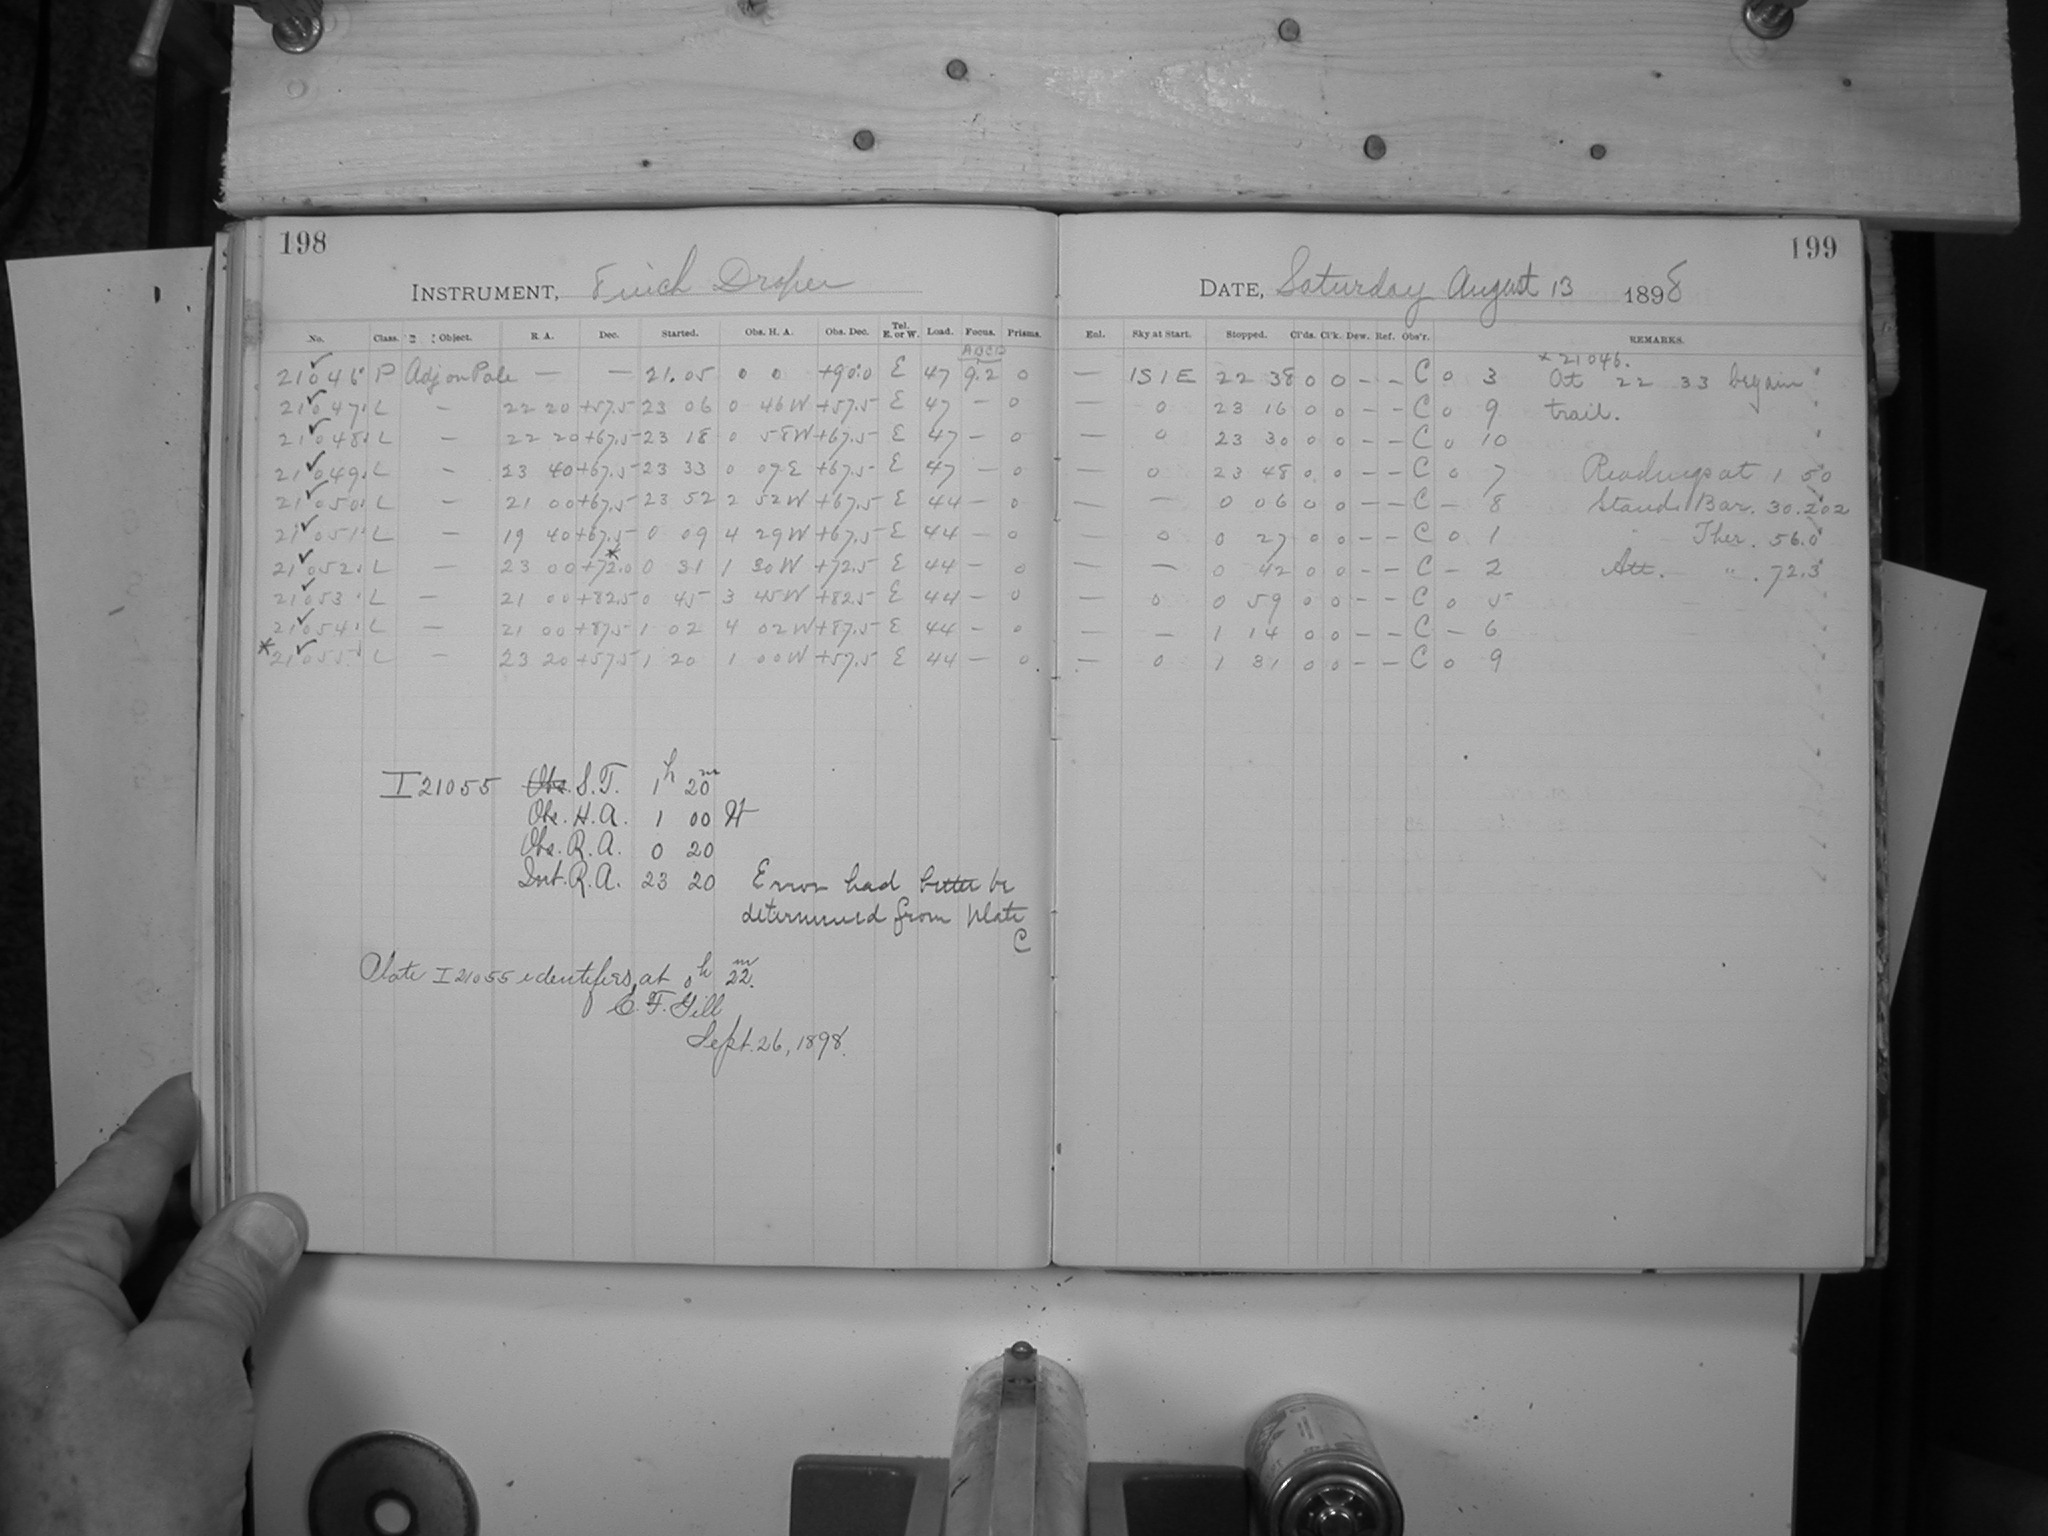 198
INSTRUMENT, 8 inch Draper
No. Class. Object. R. A. Dec. Started. Obs. H. A. Obs. Dec. Tel. E. or W. Load. Focus. Prisms.
ABCD
21046 P Adj on Pole — — 21.05 0 0 +90.0 E 47 9.2 0
21047 L — 22 20 +57.5 23 06 0 46W +57.5 E 47 — 0
21048 L — 22 20 +67.5 23 18 0 58W +67.5 E 47 — 0
21049 L — 23 40 +67.5 23 33 0 07E +67.5 E 47 — 0
21050 L — 21 00 +67.5 23 52 2 52W +67.5 E 44 — 0
21051 L — 19 40 +67.5 0 09 4 29W +67.5 E 44 — 0
21052 L — 23 00 +72.0* 0 31 1 30W +72.5 E 44 — 0
21053 L — 21 00 +82.5 0 45 3 45W +82.5 E 44 — 0
21054 L — 21 00 +87.5 1 02 4 02W +87.5 E 44 — 0
*21055 L — 23 20 +57.5 1 20 1 00W +57.5 E 44 — 0
I 21055 Obs. S.T. 1h 20m
Obs. H.A. 1 00 W
Obs. R.A. 0 20
Int. R.A. 23 20 Error had better be
determined from plate
C
Plate I 21055 identifies at 0h 22m.
E. F. Gill
Sept. 26, 1898.
199
DATE, Saturday August 13 1898
Enl. Sky at Start. Stopped. Cl'ds. Cl'k. Dew. Ref. Obs'r. REMARKS.
— 1S1E 22 38 0 0 — — C 0 3 * 21046.
At 22 33 began
— 0 23 16 0 0 — — C 0 9 trail.
— 0 23 30 0 0 — — C 0 10
— 0 23 48 0 0 — — C 0 7 Readings at 1 50
— — 0 06 0 0 — — C — 8 Stand. Bar. 30.202
— 0 0 27 0 0 — — C 0 1 " Ther. 56.0
— — 0 42 0 0 — — C — 2 Att. " . 72.3
— 0 0 59 0 0 — — C 0 5
— — 1 14 0 0 — — C — 6
— 0 1 31 0 0 — — C 0 9